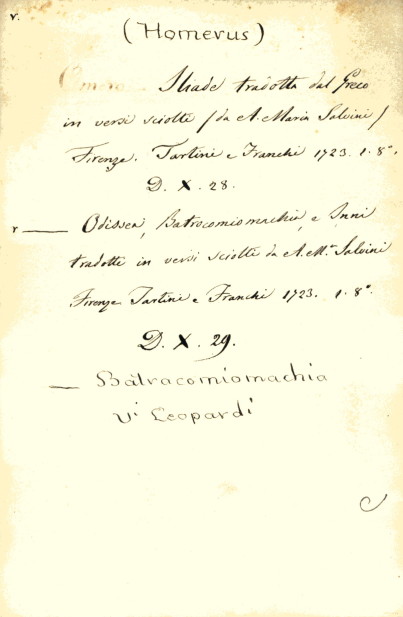 v. (Homerus)
Omero Iliade tradotta dal Greco
in versi sciolti / da A. Maria Salvini /
Firenze. Tartini e Franchi 1723. 1. 8°.
D. X. 28.
v — Odissea, Batrocomiomachia, e Inni
tradotte in versi sciolti da A. M.ª Salvini
Firenze Tartini e Franchi 1723. 1. 8°.
D. X. 29.
— Batracomiomachia
vi Leopardi